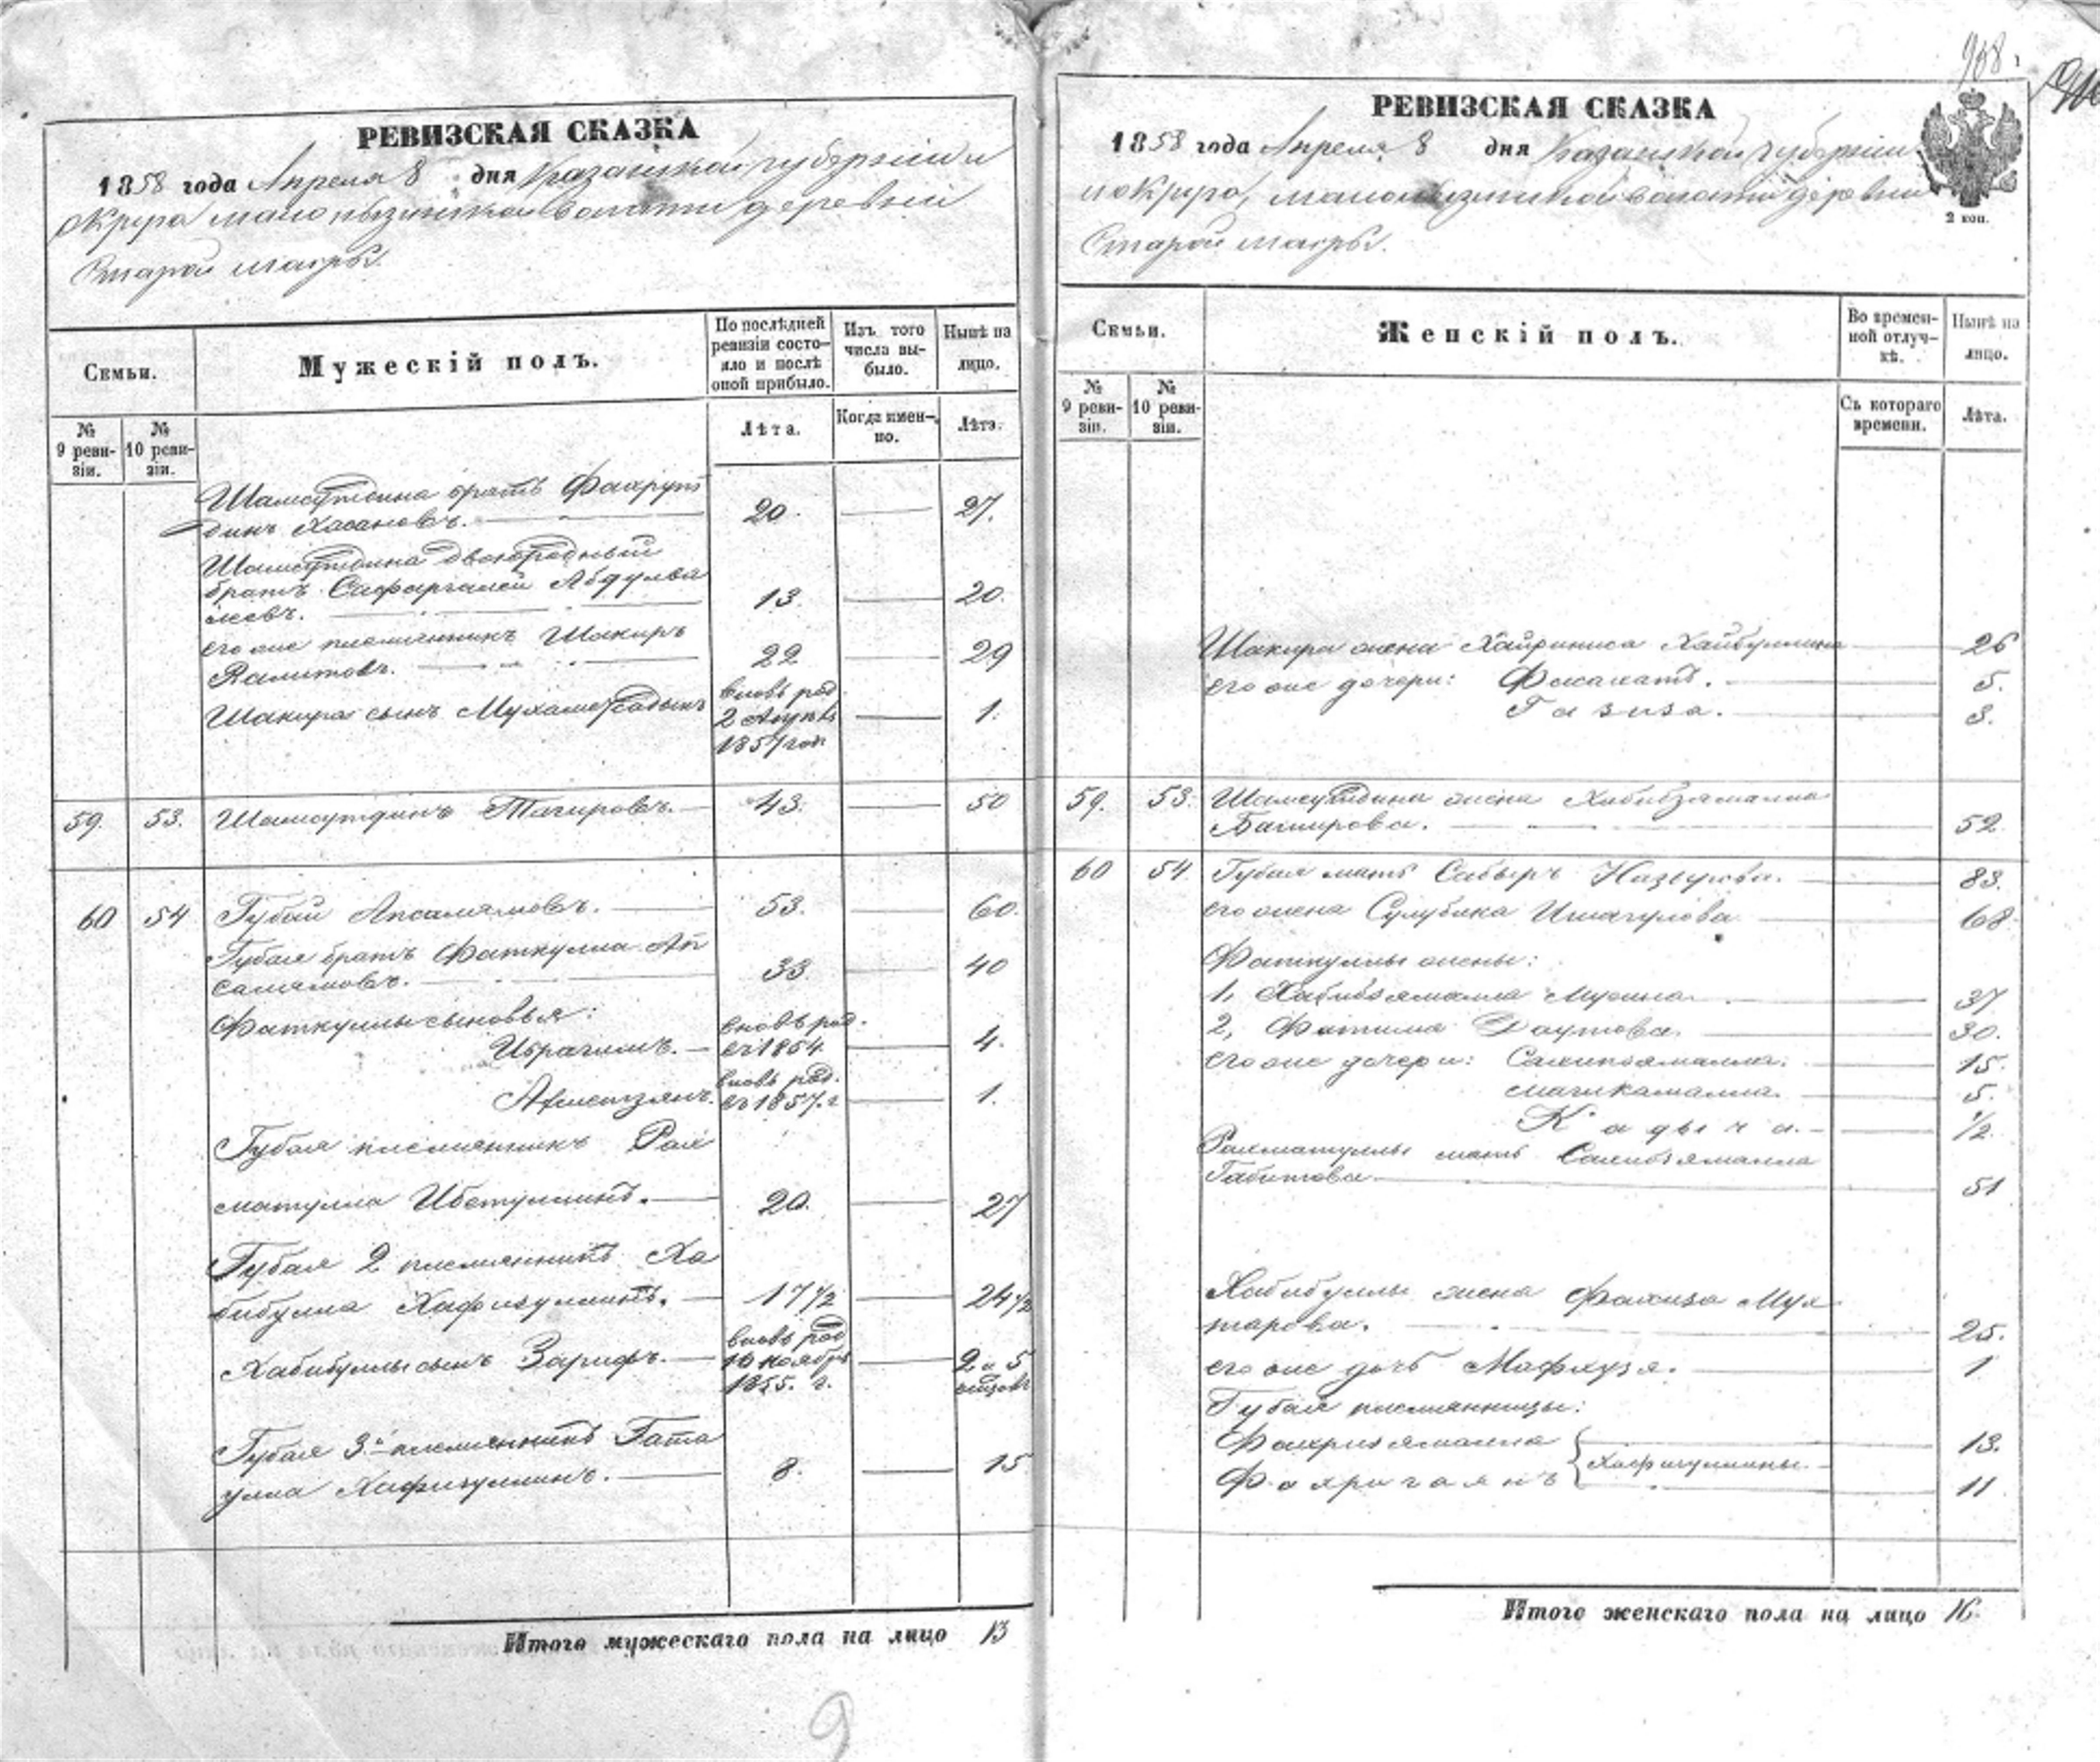 РЕВИЗСКАЯ СКАЗКА
1858 года Апреля 8 дня Казанской губернии и
округа деревни
Старой
Семьи.
Мужескій полъ.
По послѣдней ревизіи состояло и послѣ оной прибыло.
Изъ того числа выбыло.
Нынѣ на лицо.
№ 9 ревизіи.
№ 10 ревизіи.
Лѣта.
Когда именно.
Лѣта.
Шамсутдина братъ Фахрут
динъ Хасановъ. 20. 27.
Шамсутдина двоюродный
братъ Сафаргалей Абдулва
леевъ. 13. 20.
его же племянникъ Шакиръ
22 29
Шакира сынъ вновь род. 2 1857 год 1.
59. 53. Шамсутдинъ Тагировъ. 43. 50
60 54 Губай Апсалямовъ. 53. 60.
Губая братъ Фаткулла Ап
салямовъ. 33. 40
Фаткуллы сыновья:
Ибрагимъ. вновь род. въ 1854 4.
Ахметзянъ. вновь род. въ 1857 г 1.
Губая племянникъ Рах
матулла 20. 27
Губая 2 племянникъ Ха
бибулла Хафизуллинъ. 17 1/2 24 1/2
Хабибуллы сынъ Зарифъ. вновь род 10 ноября 1855. г. 2 и 5
Губая 3й племянникъ Гата
улла Хафизуллинъ. 8. 15
Итого мужескаго пола на лицо 13
9
РЕВИЗСКАЯ СКАЗКА
1858 года Апреля 8 дня Казанской губернии
и округа, деревни
Старой
2 коп.
Семьи.
Женскій полъ.
Во временной отлучкѣ.
Нынѣ на лицо.
№ 9 ревизіи.
№ 10 ревизіи.
Съ котораго времени.
Лѣта.
Шакира жена Хайриниса Хайбуллина 26
его же дочери: 5.
Газиза. 3.
59. 53. Шамсутдина жена Хабибзямалла
Баширова. 52.
60 54 Губая мать Сабыръ 83.
его жена Сулубика 68.
Фаткуллы жены:
1, Хабибзямалла Мусина 37
2, Фатима Даутова. 30.
его же дочери: 15.
Магикамалла. 5.
Кадыча. 1/2.
Рахматуллы мать
Габитова. 51
Хабибуллы жена Фахиза Мух
тарова. 25.
его же дочь Мафхузя. 1
Губая племянницы:
Фахризямалла 13.
Хафизуллины.
11
Итого женскаго пола на лицо 16.